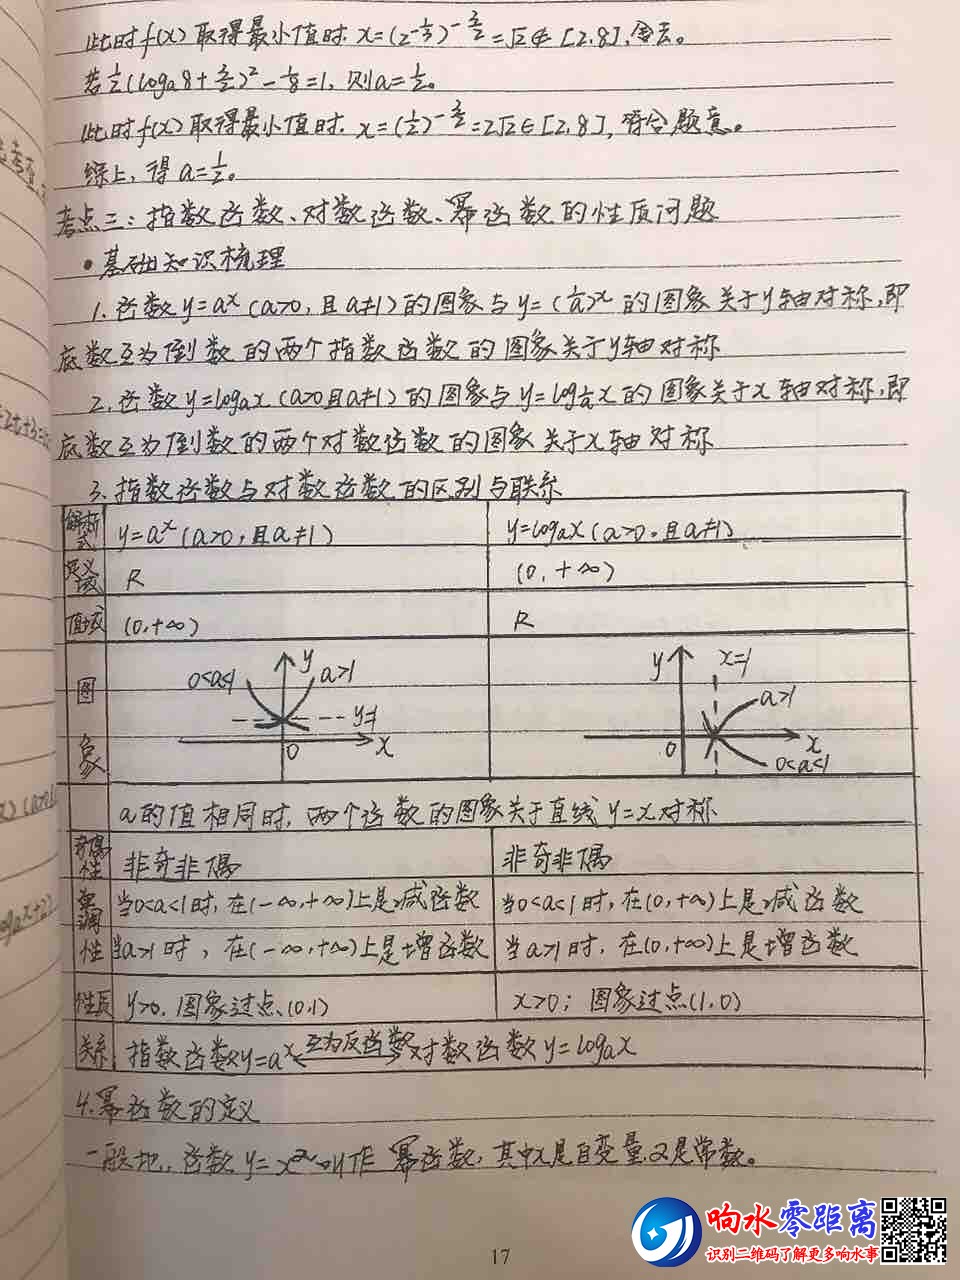 此时f(x)取得最小值时,x=(2^{-1/3})^{-3/2}=√2∉[2,8],舍去。
若1/2(log_a8+3/2)²-1/8=1,则a=1/2。
此时f(x)取得最小值时,x=(1/2)^{-3/2}=2√2∈[2,8],符合题意。
综上,得a=1/2。
考点三:指数函数、对数函数、幂函数的性质问题
•基础知识梳理
1.函数y=a^x(a>0,且a≠1)的图象与y=(1/a)^x的图象关于y轴对称,即
底数互为倒数的两个指数函数的图象关于y轴对称
2.函数y=log_a x(a>0且a≠1)的图象与y=log_{1/a}x的图象关于x轴对称,即
底数互为倒数的两个对数函数的图象关于x轴对称
3.指数函数与对数函数的区别与联系
解析式 y=a^x(a>0,且a≠1) y=log_a x(a>0,且a≠1)
定义域 R (0,+∞)
值域 (0,+∞) R
图象
0<a<1 y a>1 y=1 0 x
y x=1 a>1 0 x 0<a<1
a的值相同时,两个函数的图象关于直线y=x对称
奇偶性 非奇非偶 非奇非偶
单调性 当0<a<1时,在(-∞,+∞)上是减函数 当0<a<1时,在(0,+∞)上是减函数
当a>1时,在(-∞,+∞)上是增函数 当a>1时,在(0,+∞)上是增函数
性质 y>0,图象过点(0,1) x>0;图象过点(1,0)
关系 指数函数y=a^x 互为反函数 对数函数y=log_a x
4.幂函数的定义
一般地,函数y=x^α叫作幂函数,其中x是自变量,α是常数。
17
响水零距离
识别二维码了解更多响水事